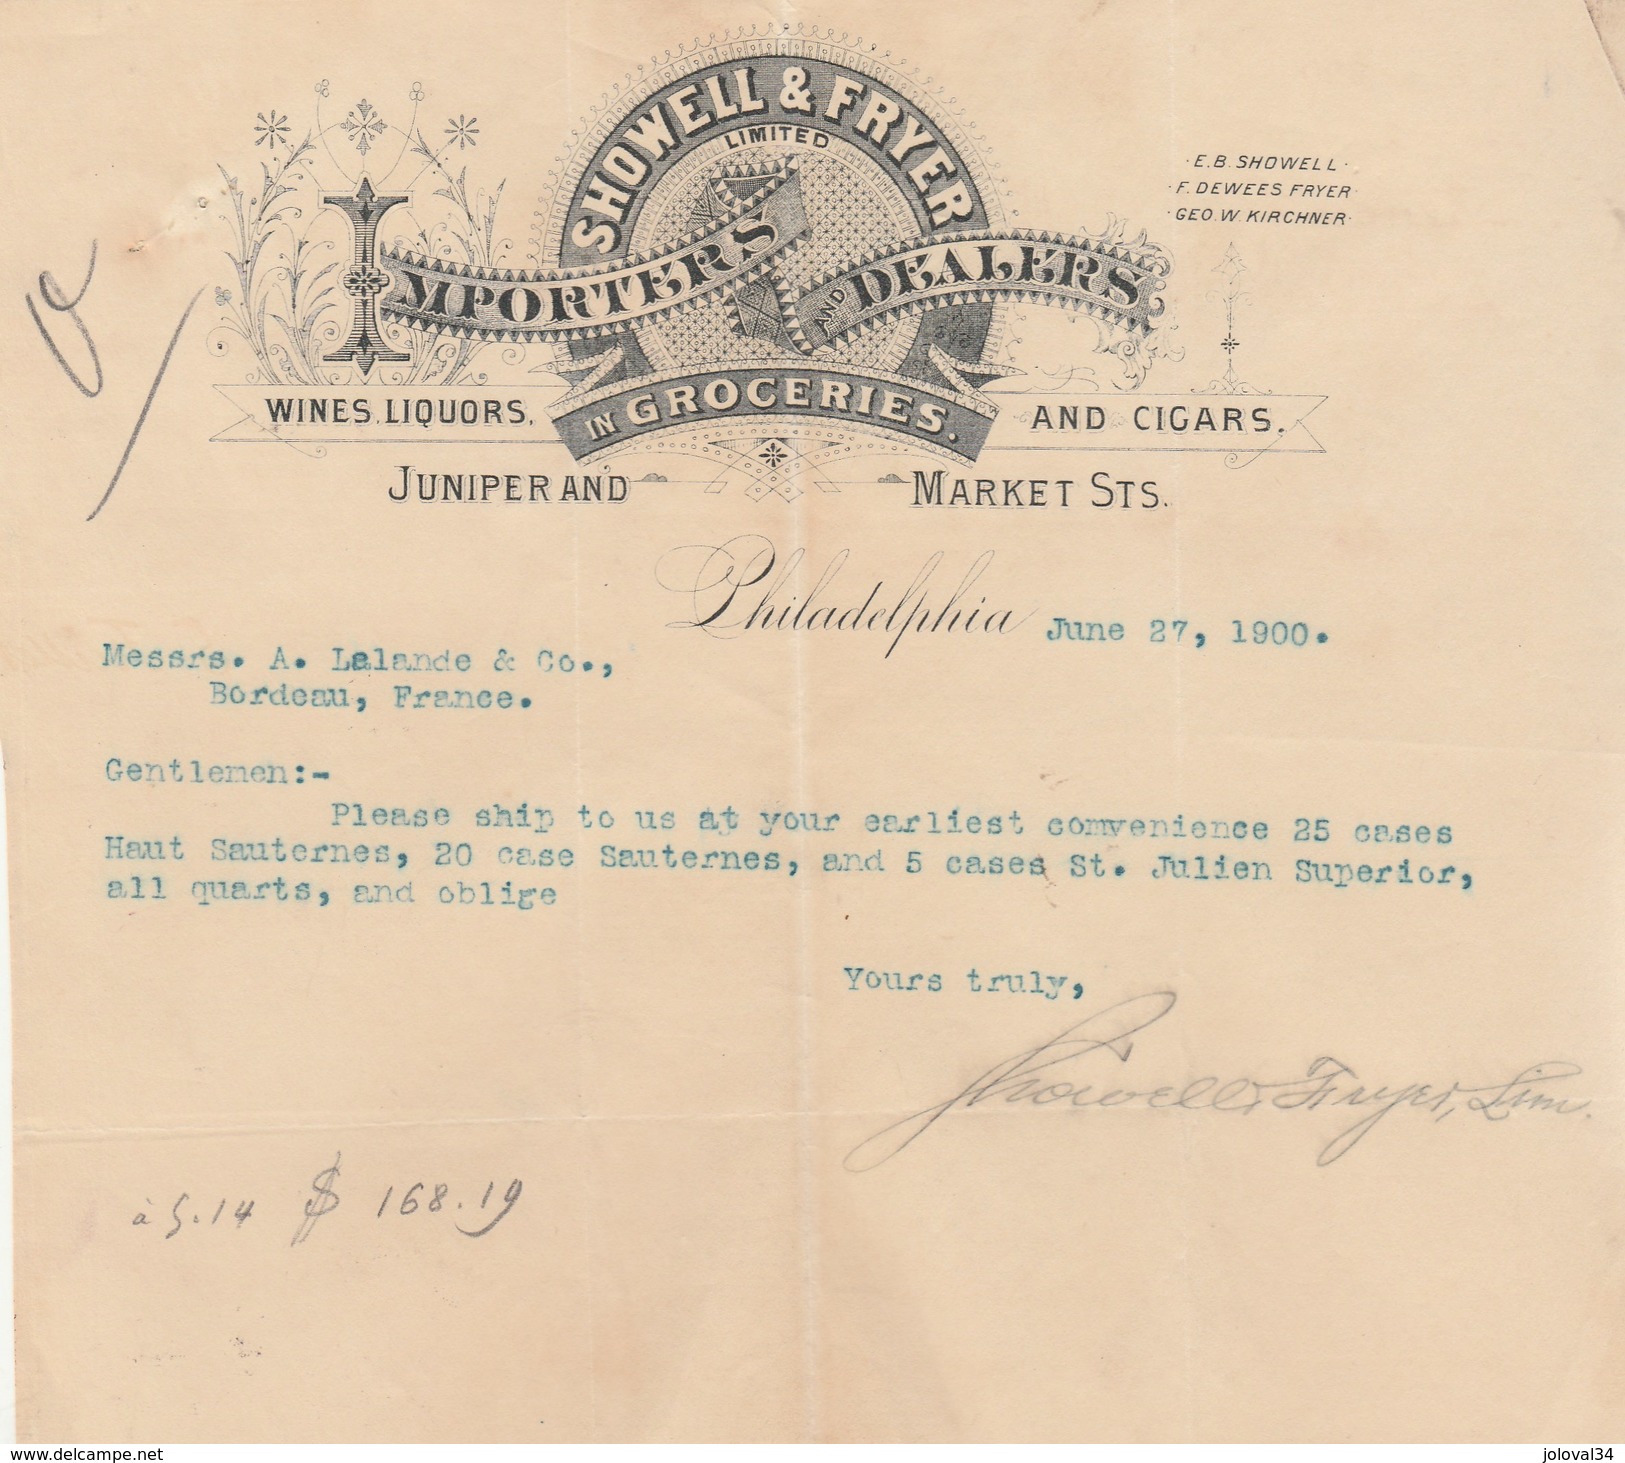 SHOWELL & FRYER
LIMITED
IMPORTERS AND DEALERS
IN GROCERIES.
WINES, LIQUORS, AND CIGARS.
JUNIPER AND MARKET STS.
E. B. SHOWELL
F. DEWEES FRYER
GEO. W. KIRCHNER
Philadelphia June 27, 1900.
Messrs. A. Lalande & Co.,
Bordeau, France.
Gentlemen:-
Please ship to us at your earliest comvenience 25 cases
Haut Sauternes, 20 case Sauternes, and 5 cases St. Julien Superior,
all quarts, and oblige
Yours truly,
Showell & Fryer, Lim.
à 5.14 $ 168.19
www.delcampe.net
joloval34